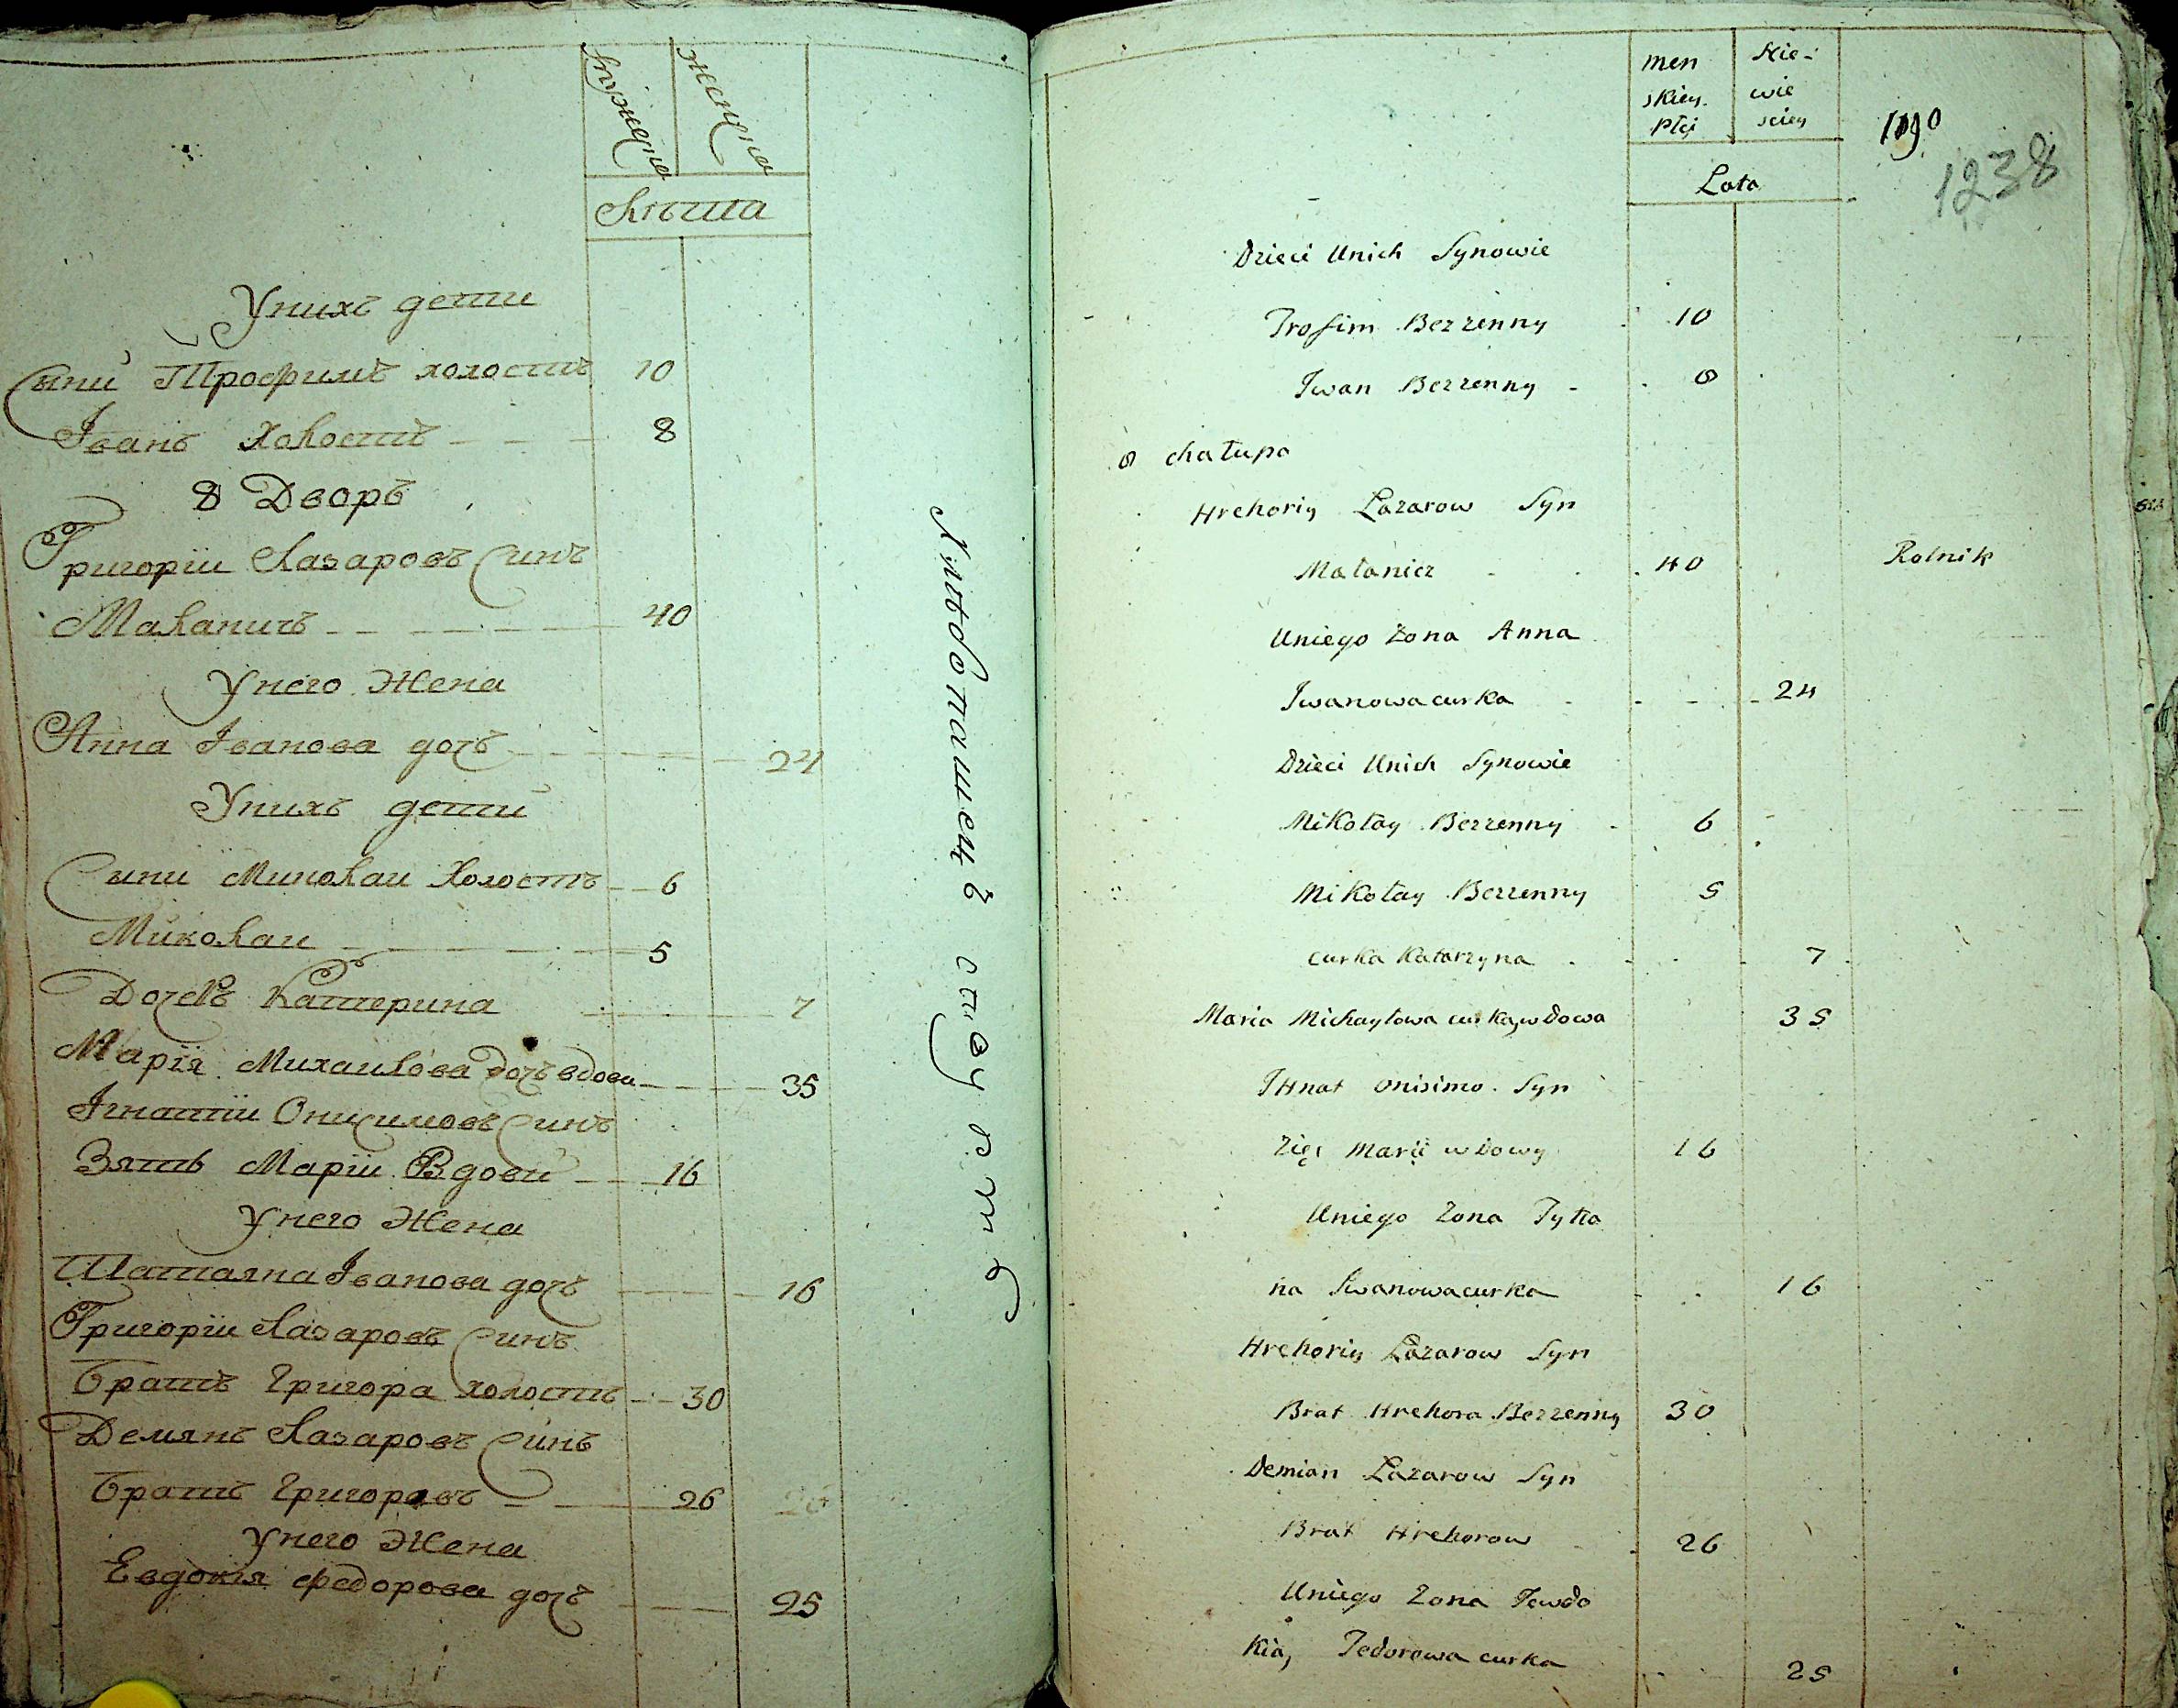 мужеска
женска
Лѣта
Унихъ дети
Сыни Трофимъ холостъ 10
Іванъ Холостъ 8
8 Дворъ
Григорїи Лазаровъ Синъ
Маланичъ 40
Унего Жена
Анна Іванова дочъ 24
Унихъ дети
Сыни Миколаи Холостъ 6
Миколаи 5
Дочеръ Катерина 7
Марїя Михаилова дочъ вдова 35
Ігнатїи Онисимовъ Синъ
Зять Марїи Вдови 16
Унего Жена
Татіяна Іванова дочъ 16
Григорїи Лазаровъ Синъ
Братъ Григора холостъ 30
Демянъ Лазаровъ Синъ
Братъ Григоровъ 26
Унего Жена
Евдокїя Федорова дочъ 25
Хлѣбопашецъ
men
skiey
Płci
Nie-
wie
sciey
Lata
1190
1238
Dzieci Unich Synowie
Trofim Bezzenny 10
Iwan Bezzenny 8
8 chałupa
Hrehoriy Łazarow Syn
Małanicz 40 Rolnik
Uniego Zona Anna
Iwanowa curka 24
Dzieci Unich Synowie
Mikołay Bezzenny 6
Mikołay Bezzenny 5
curka Katarzyna 7
Maria Michayłowa curka, wdowa 35
Ihnat Onisimo. Syn
Zięc Marii wdowy 16
Uniego Zona Tytia
na Iwanowa curka 16
Hrehoriy Łazarow Syn
Brat Hrehora Bezzenny 30
Demian Łazarow Syn
Brat Hrehorow 26
Uniego Zona Jewdo
Kia, Fedorowa curka 25